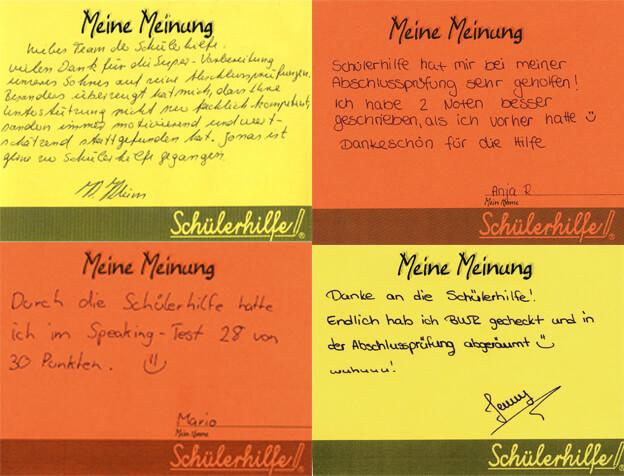 Meine Meinung
Liebes Team der Schülerhilfe.
vielen Dank für die Super-Vorbereitung
unseres Sohnes auf seine Abschlussprüfungen.
Besonders überzeugt hat mich, dass Ihre
Unterstützung nicht nur fachlich-kompetent,
sondern immer motivierend und wert-
schätzend stattgefunden hat. Jonas ist
gerne zur Schülerhilfe gegangen
Schülerhilfe!®
Meine Meinung
Schülerhilfe hat mir bei meiner
Abschlussprüfung sehr geholfen!
Ich habe 2 Noten besser
geschrieben, als ich vorher hatte
Dankeschön für die Hilfe
Anja R
Mein Name
Schülerhilfe!®
Meine Meinung
Durch die Schülerhilfe hatte
ich im Speaking-Test 28 von
30 Punkten.
Mario
Mein Name
Schülerhilfe!®
Meine Meinung
Danke an die Schülerhilfe!
Endlich hab ich BWR gecheckt und in
der Abschlussprüfung abgeräumt
wuhuuu!
Jenny
Schülerhilfe!®